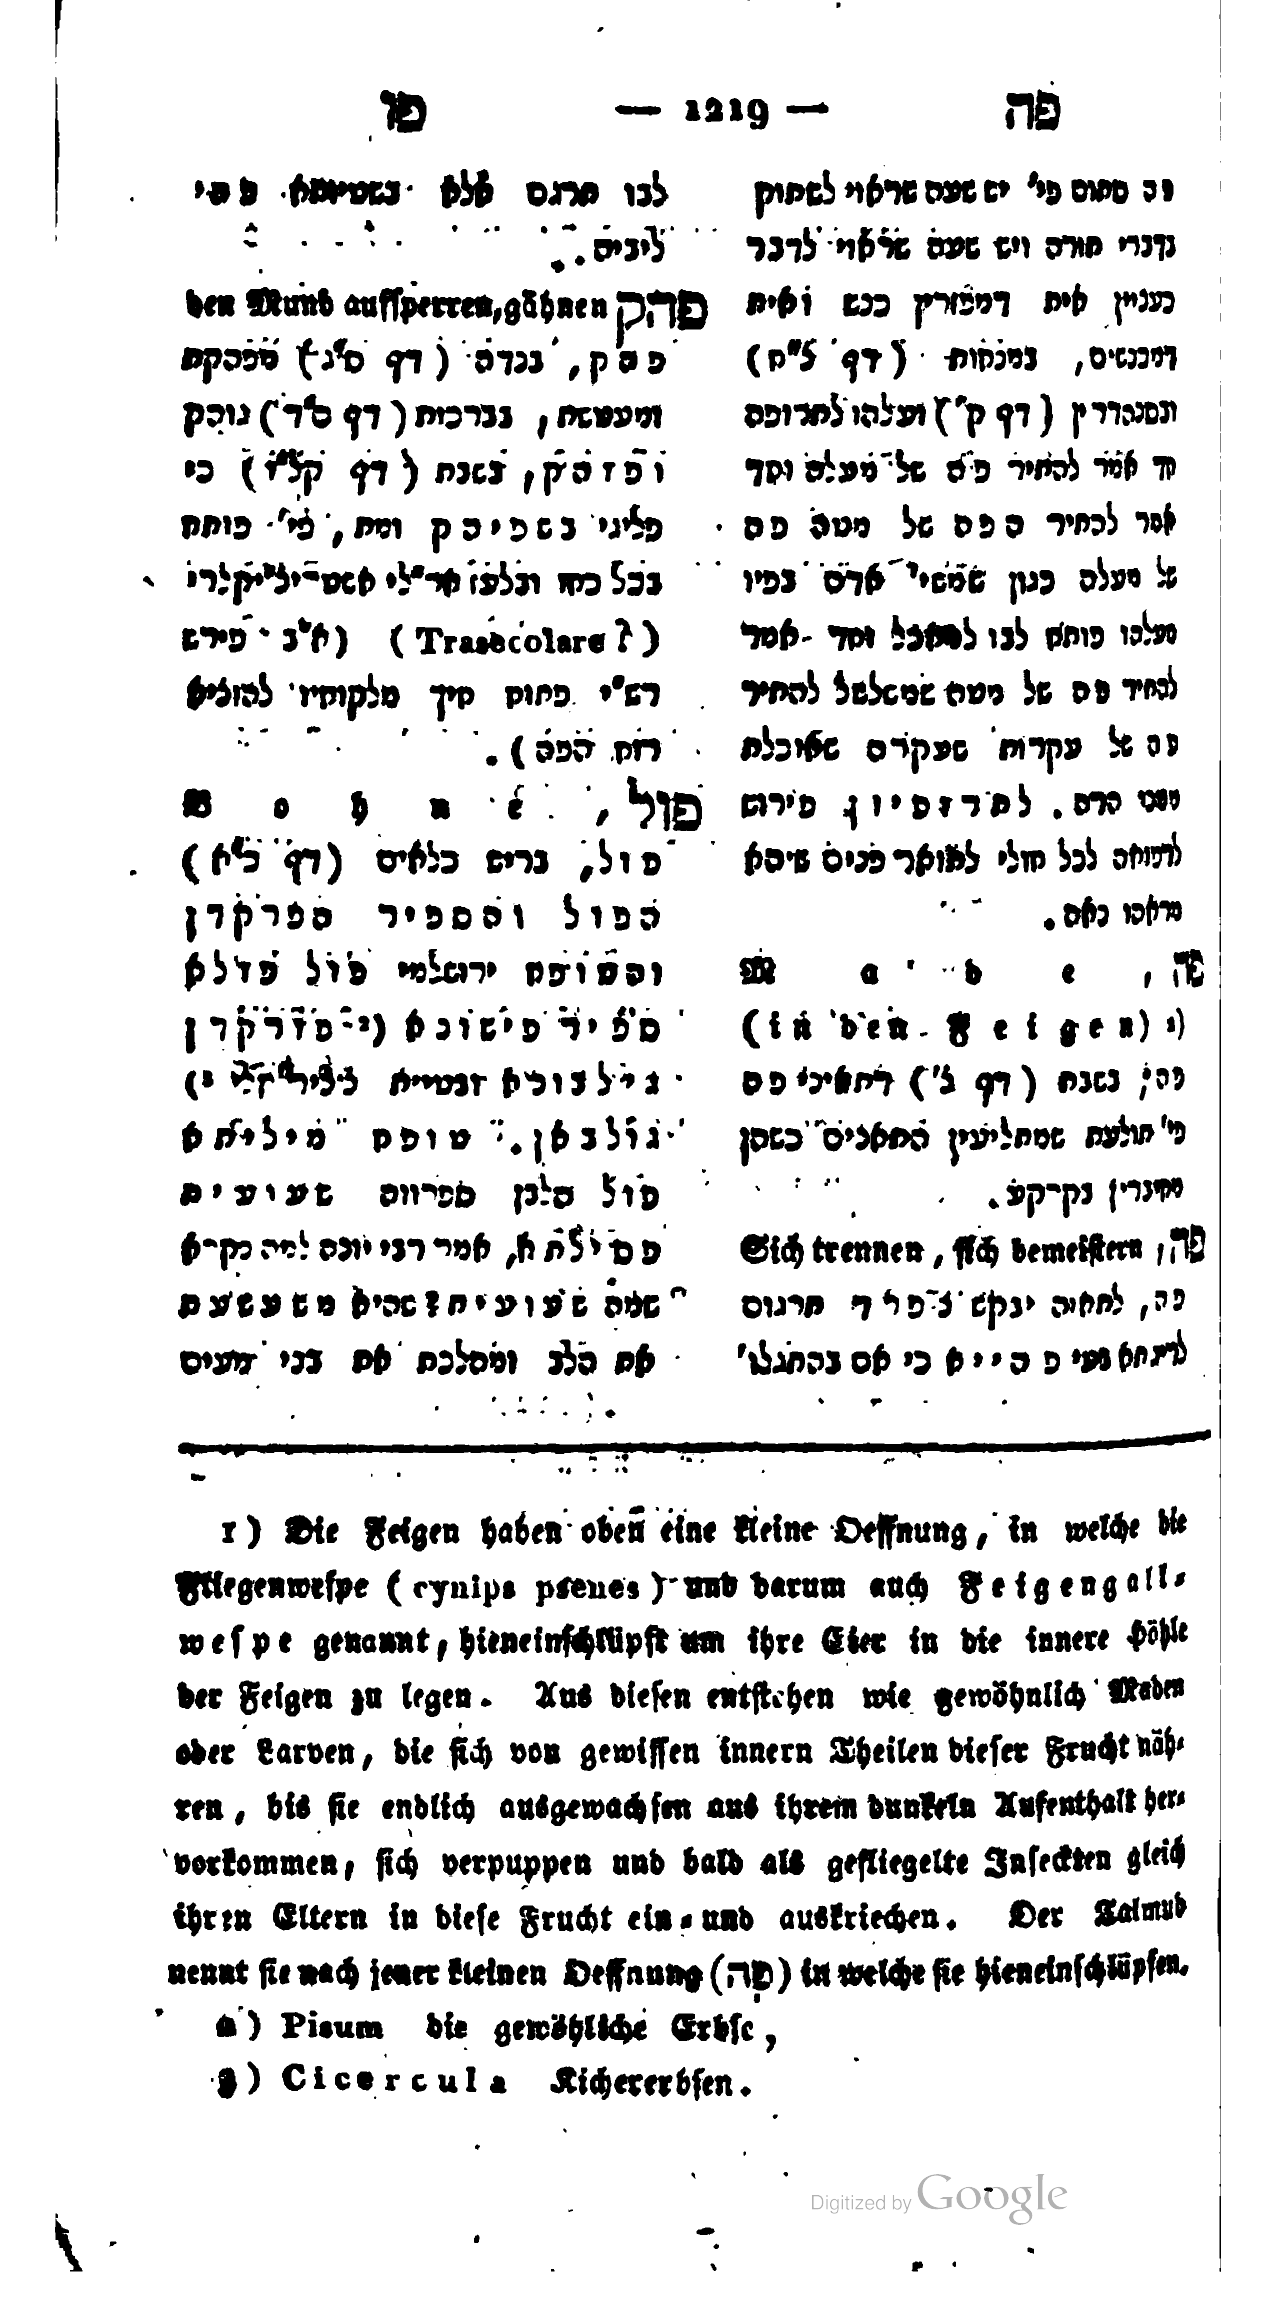 פה — 1219 — פו
פה סתום פי׳ יש שעה שראוי לשתוק
בדברי תורה ויש שעה שראוי לדבר
כעניין אית דמפזרין כנש ואית
דמכנשים, במנחות (דף ל״ח)
ובסנהדרין (דף ק״) ועלהו לתרופה
חד אמר להתיר פה של מעלה וחד
אמר להתיר הפה של מטה פה
של מעלה כגון שמשי׳ אדם בפיו
מעלהו פותח לבו לאכל וחד אמר
להתיר פה של מטה שמשלשל להתיר
פה של עקרות שעקרה שאוכלת
ממנו הרה. לתרזסיון פירש
לרפואה לכל חולי לתואר פנים שיהא
מראהו נאה.
פה, Made
(in den Feigen) (1
פה, בשבת (דף צ׳) דתאיני פה
פי׳ תולעת שמתליעין התאנים כשהן
מחוברין בקרקע.
פה, Sich trennen, sich bemeistern
פה, לחזיה ינקש כפרד תרגום
פהייא כי אם בהתגלו׳
לבו תרגם אלא בשטיותא פתי
ליביה.
פהק den Mund aufsperren, gähnen
פהק, בנדה (דף ס״ג) מפהקת
ומעטשת, בברכות (דף ס״ד) גוהק
ומפהק, בשבת (דף קל״ו) כי
פליגי בשפיהק ומת, פי׳ פותח
בכל כחו ובלעז
(Trasecolare?) (א״ב פירש
רש״י פתום חיך מלקוחיו להוציא
רוח הפה).
פול, Bohne
פול, בריש כלאים (דף כ״א)
הפול והספיר הפרקדן
והטופח ירושלמי פול פדלא
ספיר פישונא (2 פרקדן
גילבונא
גולבאן. טופח מילותא
פול הלבן מפרווס שעועית
פסילתא, אמר רבי יונה למה נקרא
שמה שעועית? שהיא משעשעת
את הלב ומהלכת את בני מעים
1) Die Feigen haben oben eine kleine Oeffnung, in welche die
Fliegenwespe (cynips psenes) und darum auch Feigengall-
wespe genannt, hieneinschlüpft um ihre Eier in die innere Höhle
der Feigen zu legen. Aus diesen entstehen wie gewöhnlich Maden
oder Larven, die sich von gewissen innern Theilen dieser Frucht näh-
ren, bis sie endlich ausgewachsen aus ihrem dunkeln Aufenthalt her-
vorkommen, sich verpuppen und bald als gefliegelte Insekten gleich
ihren Eltern in diese Frucht ein- und auskriechen. Der Talmud
nennt sie nach jener kleinen Oeffnung (פה) in welche sie hieneinschlüpfen.
2) Pisum die gewöhliche Erbse,
3) Cicercula Kichererbsen.
Digitized by Google